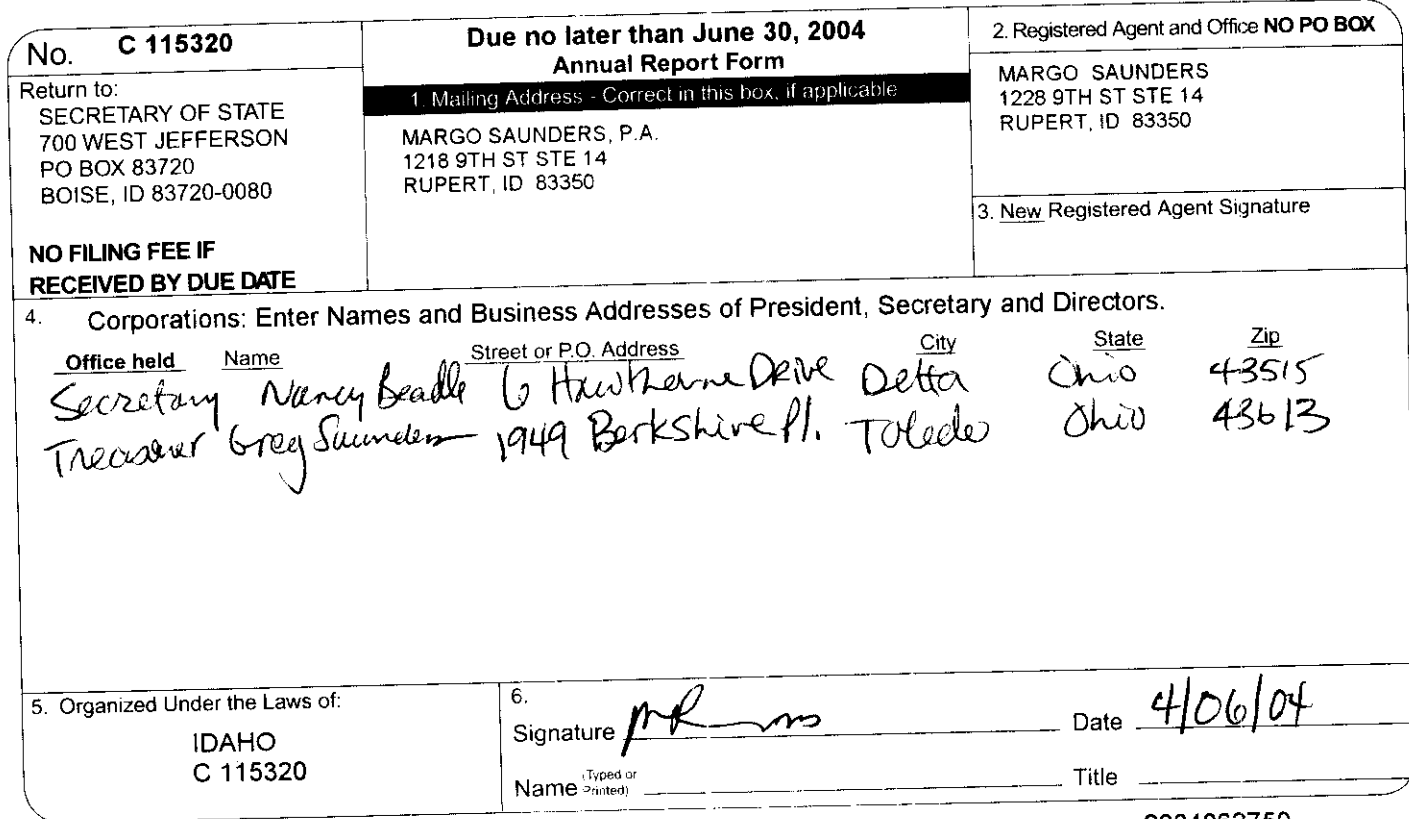 No. C 115320
Return to:
SECRETARY OF STATE
700 WEST JEFFERSON
PO BOX 83720
BOISE, ID 83720-0080
NO FILING FEE IF
RECEIVED BY DUE DATE
Due no later than June 30, 2004
Annual Report Form
1. Mailing Address - Correct in this box, if applicable
MARGO SAUNDERS, P.A.
1218 9TH ST STE 14
RUPERT, ID 83350
2. Registered Agent and Office NO PO BOX
MARGO SAUNDERS
1228 9TH ST STE 14
RUPERT, ID 83350
3. New Registered Agent Signature
4. Corporations: Enter Names and Business Addresses of President, Secretary and Directors.
Office held Name Street or P.O. Address City State Zip
Secretary Nancy Beadle 6 Hawthorne Drive Delta Ohio 43515
Treasurer Greg Saunders 1949 Berkshire Pl. Toledo Ohio 43613
5. Organized Under the Laws of:
IDAHO
C 115320
6.
Signature Date 4/06/04
Name (Typed or Printed) Title